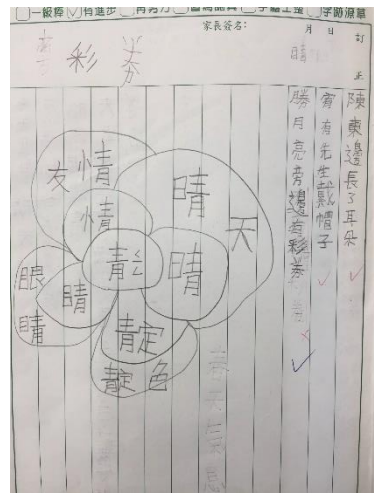 一級棒 有進步 再努力
家長簽名： 月 日
訂正
彩 券
晴
陳東邊長了耳朵
賓有先生戴帽子
勝月亮旁邊有彩券
友情
情
晴天
晴
青
眼睛
睛
靛
靛色